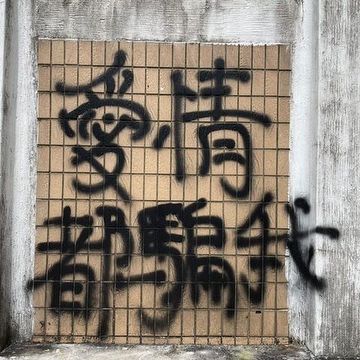 愛情
都騙我